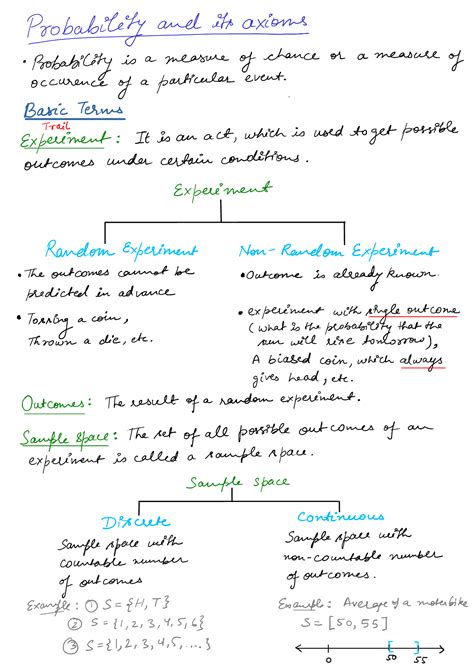 Probability and its axioms
• Probability is a measure of chance or a measure of
occurence of a particular event.
Basic Terms
Trail
Experiment : It is an act, which is used to get possible
outcomes under certain conditions.
Experiment
Random Experiment
• The outcomes cannot be
predicted in advance
• Tossing a coin,
Thrown a die, etc.
Non-Random Experiment
• Outcome is already known.
• experiment with single outcome
(what is the probability that the
sun will rise tomorrow),
A biased coin, which always
gives head, etc.
Outcomes: The result of a random experiment.
Sample space: The set of all possible outcomes of an
experiment is called a sample space.
Sample space
Discrete
Sample space with
countable number
of outcomes
Example: ① S = {H, T}
② S = {1, 2, 3, 4, 5, 6}
③ S = {1, 2, 3, 4, 5, ....}
Continuous
Sample space with
non-countable number
of outcomes.
Example: Average of a moterbike
S = [50, 55]
0 50 55